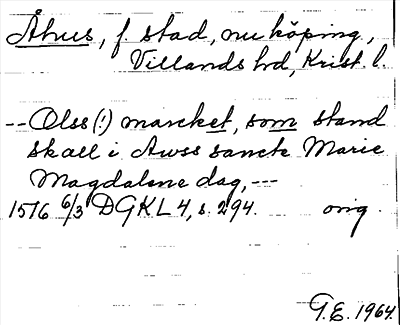 Åhus, f. stad, nu köping,
Villands hd, Krist. l.
-- Olss (:) marcket, som stand
skall i Awss sancte Marie
Magdalene dag, ---
1516 6/3 DGKL 4, s. 294. orig.
G.E. 1964.